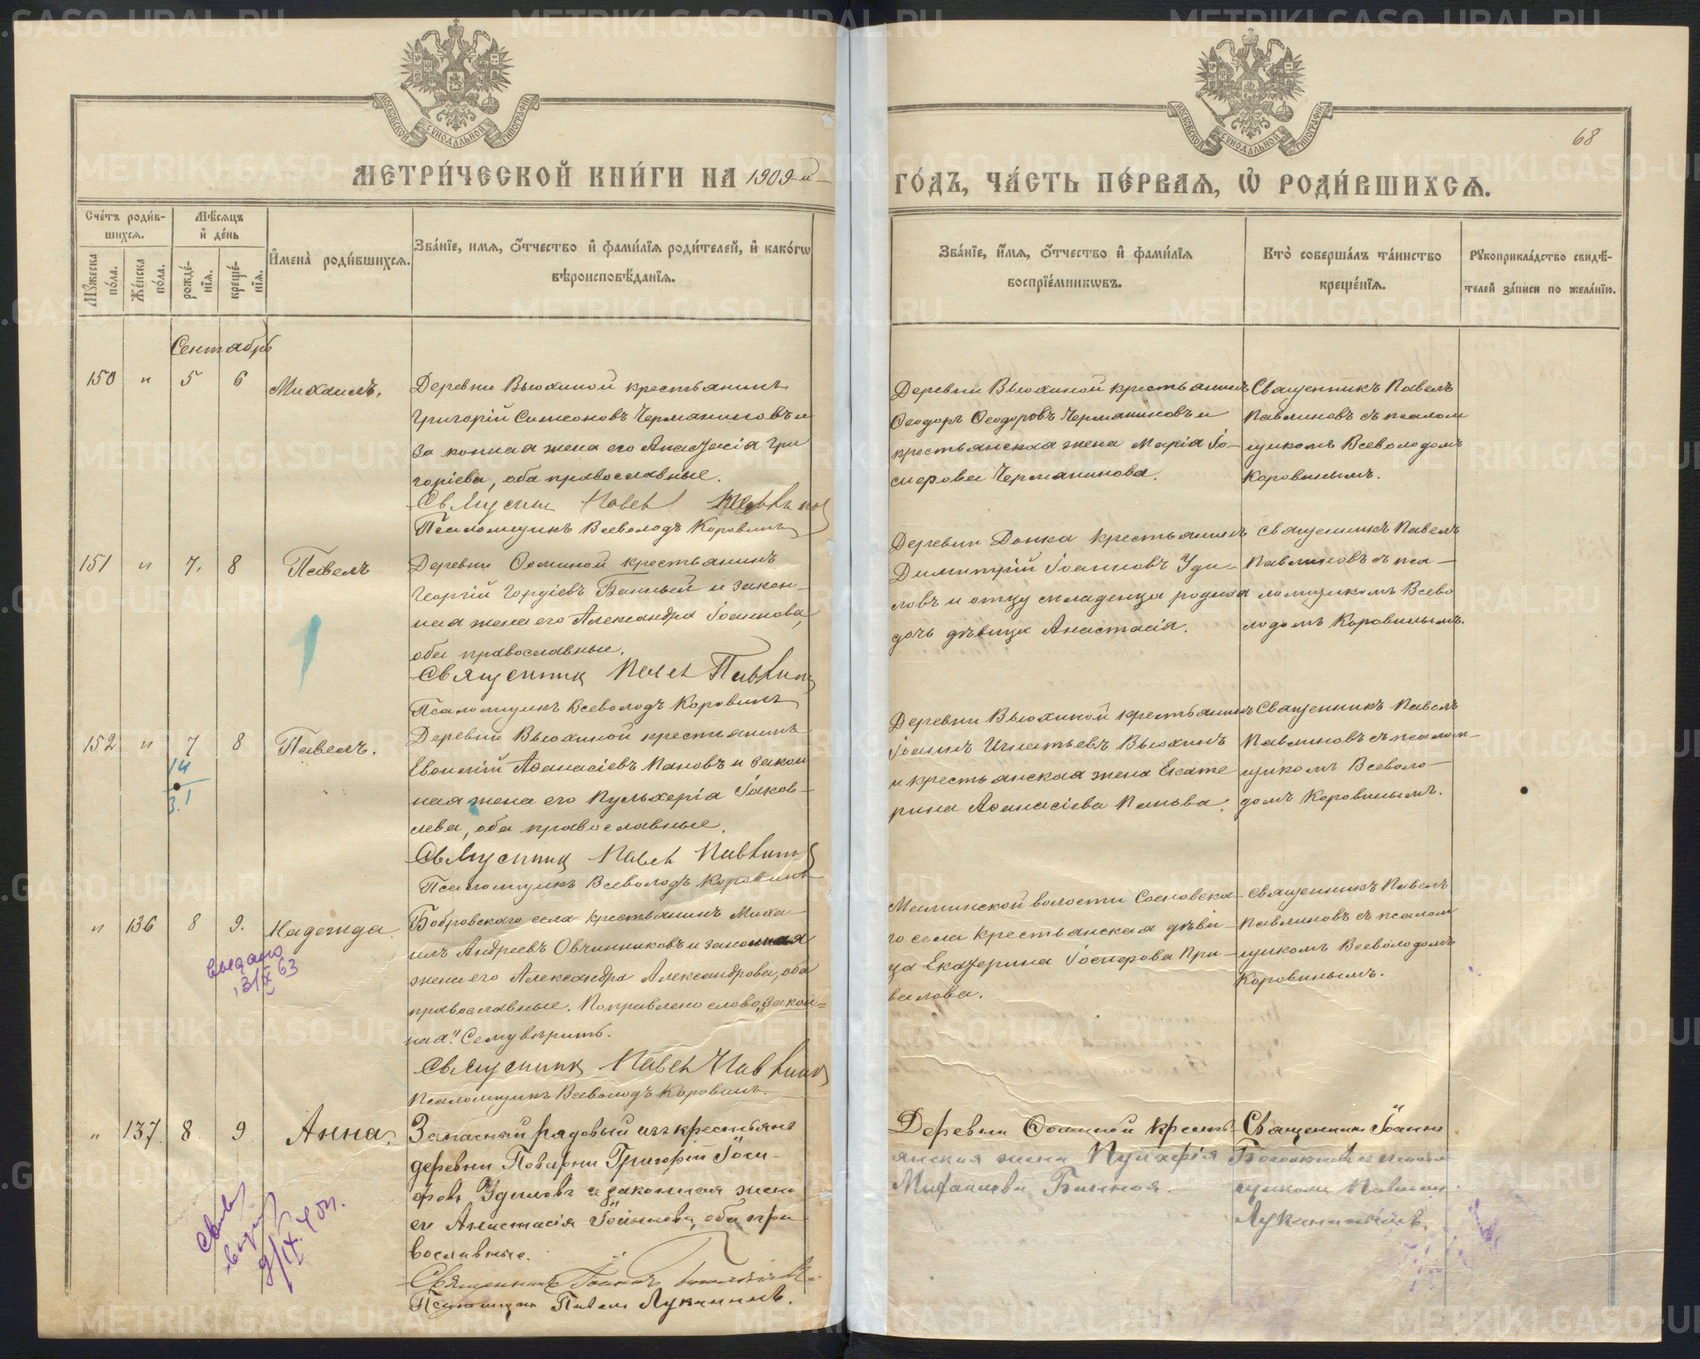 МЕТРИ́ЧЕСКОЙ КНИ́ГИ НА 1909-й
ГО́ДЪ, ЧА́СТЬ ПЕ́РВАЯ, Ѡ РОДИ́ВШИХСЯ.
68
Сче́тъ роди́в-
шихся.
Мѣ́сяцъ
и де́нь
Имена̀ роди́вшихся.
Зва́нїе, имя, о́тчество и фами́лїя роди́телей, и како́гѡ
вѣроисповѣ́данїя.
Му́жеска по́ла.
Же́нска по́ла.
рожде́нїя.
креще́нїя.
Зва́нїе, и́мя, о́тчество и фами́лїя
воспрїе́мникѡвъ.
Кто̀ соверша́лъ та́инство
креще́нїя.
Рукоприкла́дство свидѣ́-
телей за́писи по жела́нїю.
Сентябрь
150 " 5 6 Михаилъ.
Деревни Вьюхиной крестьянинъ
Григорій Симеоновъ Чермяниновъ и
законная жена его Анастасія Гри
горіева, оба православные.
Священник Павел Павлинов
Псаломщикъ Всеволодъ Коровинъ
Деревни Вьюхиной крестьянинъ
Ѳеодоръ Ѳеодоровъ Чермяниновъ и
крестьянская жена Марія Іо-
сифова Чермянинова.
Священникъ Павелъ
Павлиновъ съ псалом
щикомъ Всеволодомъ
Коровинымъ.
151 " 7. 8 Павелъ
Деревни Ѳоминой крестьянинъ
Георгій Гордіевъ Банный и закон-
ная жена его Александра Іоаннова,
оба православные.
Священник Павел Павлинов
Псаломщикъ Всеволодъ Коровинъ
Деревни Донка крестьянинъ
Димитрій Іоанновъ Уди-
ловъ и отцу младенца родная
дочь дѣвица Анастасія.
Священникъ Павелъ
Павлиновъ съ пса-
ломщикомъ Всево
лодомъ Коровинымъ.
152 " 7 8 Павелъ.
14
3.1
Деревни Вьюхиной крестьянинъ
Евѳимій Аѳанасіевъ Пановъ и закон
ная жена его Пульхерія Іаков-
лева, оба православные.
Священник Павел Павлинов
Псаломщикъ Всеволодъ Коровинъ
Деревни Вьюхиной крестьянинъ
Іоаннъ Игнатьевъ Вьюхинъ
и крестьянская жена Екате
рина Аѳанасіева Панова.
Священникъ Павелъ
Павлиновъ съ псалом-
щикомъ Всеволо-
домъ Коровинымъ.
" 136 8 9. Надежда
выдано
13/X 63
Бобровскаго села крестьянинъ Миха-
илъ Андреевъ Овчинниковъ и законная
жена его Александра Александрова, оба
православные. Поправлено слово "закон=
ная". Сему вѣрить.
Священник Павел Павлинов
Псаломщикъ Всеволодъ Коровинъ.
Маминской волости Сосновска-
го села крестьянская дѣви-
ца Екатерина Іосифова При-
валова.
Священникъ Павелъ
Павлиновъ съ псалом
щикомъ Всеволодомъ
Коровинымъ.
" 137. 8. 9 Анна.
Запасный рядовый изъ крестьянъ
деревни Поварни Григорій Іоси-
фовъ Удиловъ и законная жена
его Анастасія Іоаннова, оба пра-
вославные.
Священникъ Іоаннъ
Псаломщик Павел Луканинъ.
Деревни Ѳоминой кресть
янская жена Пульхерія
Михаилова Банная.
Священник Іоаннъ
щикомъ Павлом
Луканинымъ.